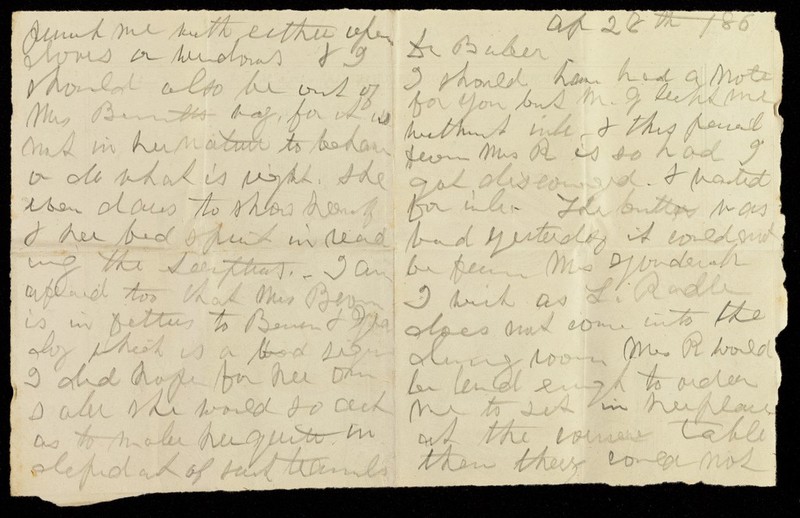 Ap 28th 186
Dr Baker
I should have had a note
for you but M. G left me
without ink - & this pencil
from Mrs R is so bad I
got discouraged. & waited
for ink The butter was
bad yesterday it could not
be from Mrs
I wish as L. Radle
does not come into the
dining room Mrs R would
be kind enough to order
me to sit in her place
at the corner table
then they could not
punish me with either open
doors or windows & I
should also be out of
Mrs way, for it is
not in her nature to behave
or do what is right. She
even dares to show herself
& her bad spirit in read
ing the Scriptures. - I am
afraid too that Mrs
is in fetters to &
which is a bad sign
I did hope for her own
sake she would so act
as to make her quite in
dependent of such